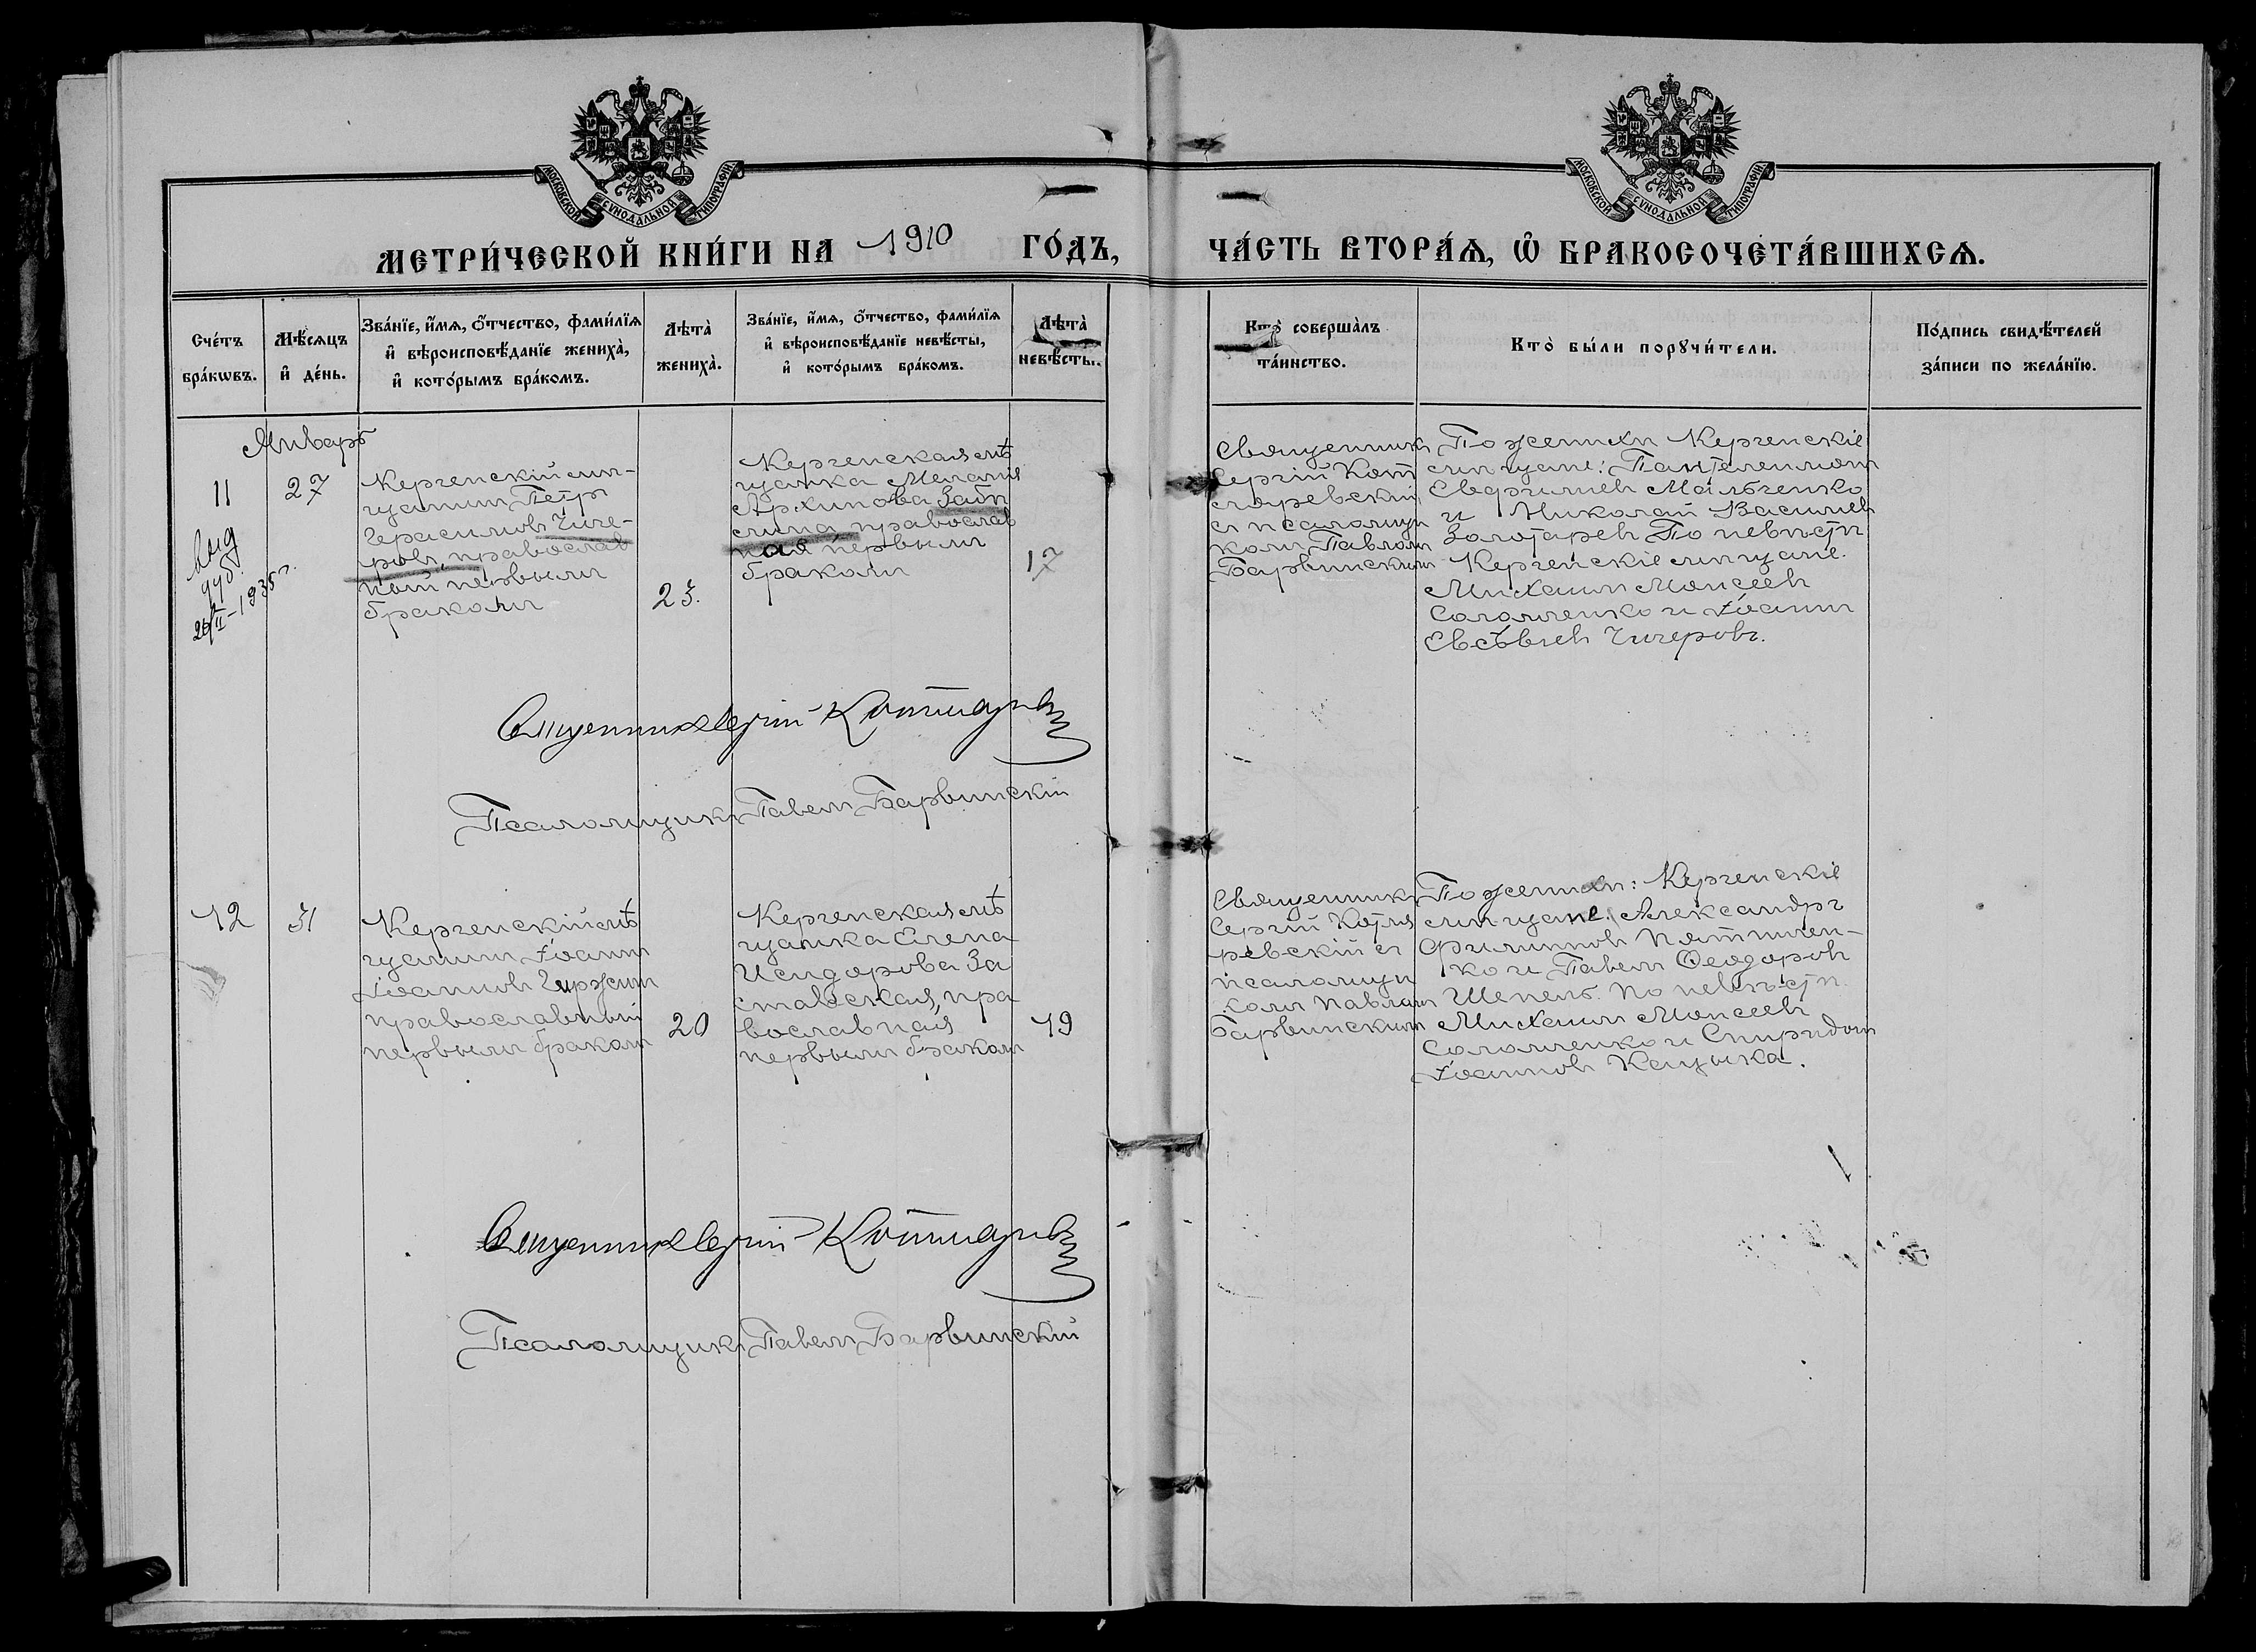 МОСКОВСКОЙ СѴНОДАЛЬНОЙ ТИПОГРАФІИ.
МОСКОВСКОЙ СѴНОДАЛЬНОЙ ТИПОГРАФІИ.
МЕТРИ́ЧЕСКОЙ КНИ́ГИ НА 1910 ГО́ДЪ,
ЧА́СТЬ ВТОРА́Ѧ, Ѡ҆ БРАКОСОЧЕТА́ВШИХСѦ.
Сче́тъ
бра́кѡвъ.
Мѣ́сѧцъ
и҆ де́нь.
Зва́нїе, и҆́мѧ, ѻ҆́тчество, фами́лїѧ
и҆ вѣроисповѣ́данїе жениха̀,
и҆ кото́рымъ бра́комъ.
Лѣта̀
жениха̀.
Зва́нїе, и҆́мѧ, ѻ҆́тчество, фами́лїѧ
и҆ вѣроисповѣ́данїе невѣ́сты,
и҆ кото́рымъ бра́комъ.
Лѣта̀
невѣ́сты.
Кто̀ соверша̀лъ
та́инство.
Кто̀ бы́ли порꙋчи́тели.
По́дпись свидѣ́телей
за́писи по жела́нїю.
Январь
11
27
выд
дуб.
26/II-1935 г.
Керченскій мѣ-
щанинъ Петръ
Герасимовъ Чиче-
ровъ, православ
ный первымъ
бракомъ
23.
Керченская мѣ
щанка Меланія
Архипова
православ
ная первымъ
бракомъ
17
Священникъ
Сергій Кот
ляревскій
съ псаломщи
комъ Павломъ
Барвинскимъ
По женихѣ Керченскіе
мѣщане: Пантелеимонъ
Мальченко
и Николай Васильевъ
Золотаревъ По невѣстѣ
Керченскіе мѣщане.
Михаилъ Моисеевъ
Соломченко и Іоаннъ
Евсѣвіевъ Чичеровъ.
Священникъ Сергій Котляревскій
Псаломщикъ Павелъ Барвинскій
12
31
Керченскій мѣ
щанинъ Іоаннъ
Іоанновъ
православный
первымъ бракомъ
20
Керченская мѣ
щанка Елена
Исидорова За
ставская, пра
вославная
первымъ бракомъ
19
Священникъ
Сергій Котля
ревскій съ
псаломщи
комъ Павломъ
Барвинскимъ
По женихѣ: Керченскіе
мѣщане: Александръ
Филипповъ
ко и Павелъ Ѳеодоровъ
Шепель. По невѣстѣ.
Михаилъ Моисеевъ
Соломченко и Спиридонъ
Іоанновъ Кацыка.
Священникъ Сергій Котляревскій
Псаломщикъ Павелъ Барвинскій